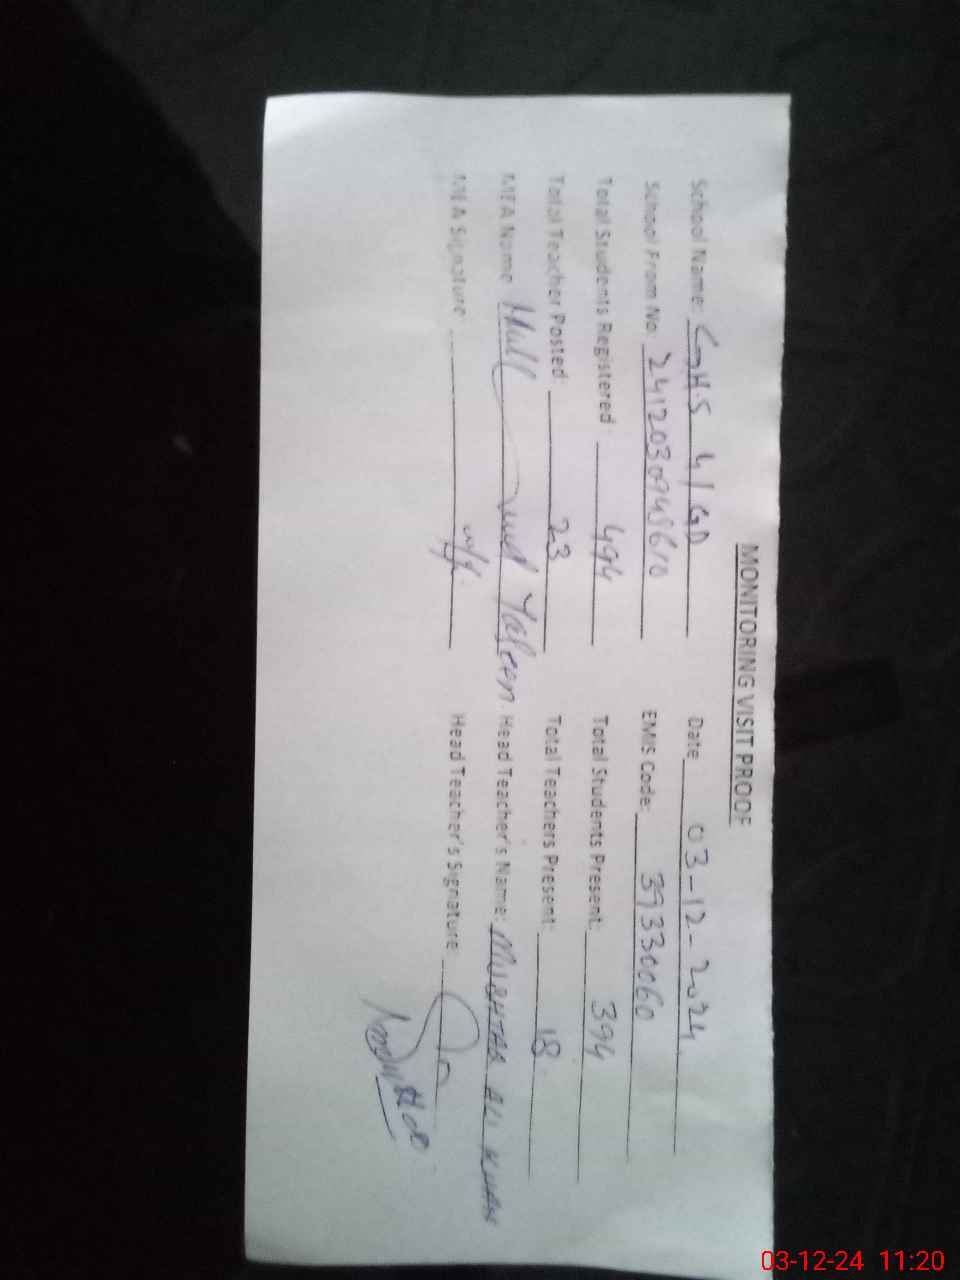 MONITORING VISIT PROOF
School Name: GHS 41GD Date 03-12-2024
School From No: EMIS Code: 39330060
Total Students Registered: 494 Total Students Present: 394
Total Teacher Posted: 23 Total Teachers Present: 18
MEA Name Yaseen Head Teacher's Name: MUSHTAQ ALI KHAN
MEA Signature: Head Teacher's Signature:
03-12-24 11:20